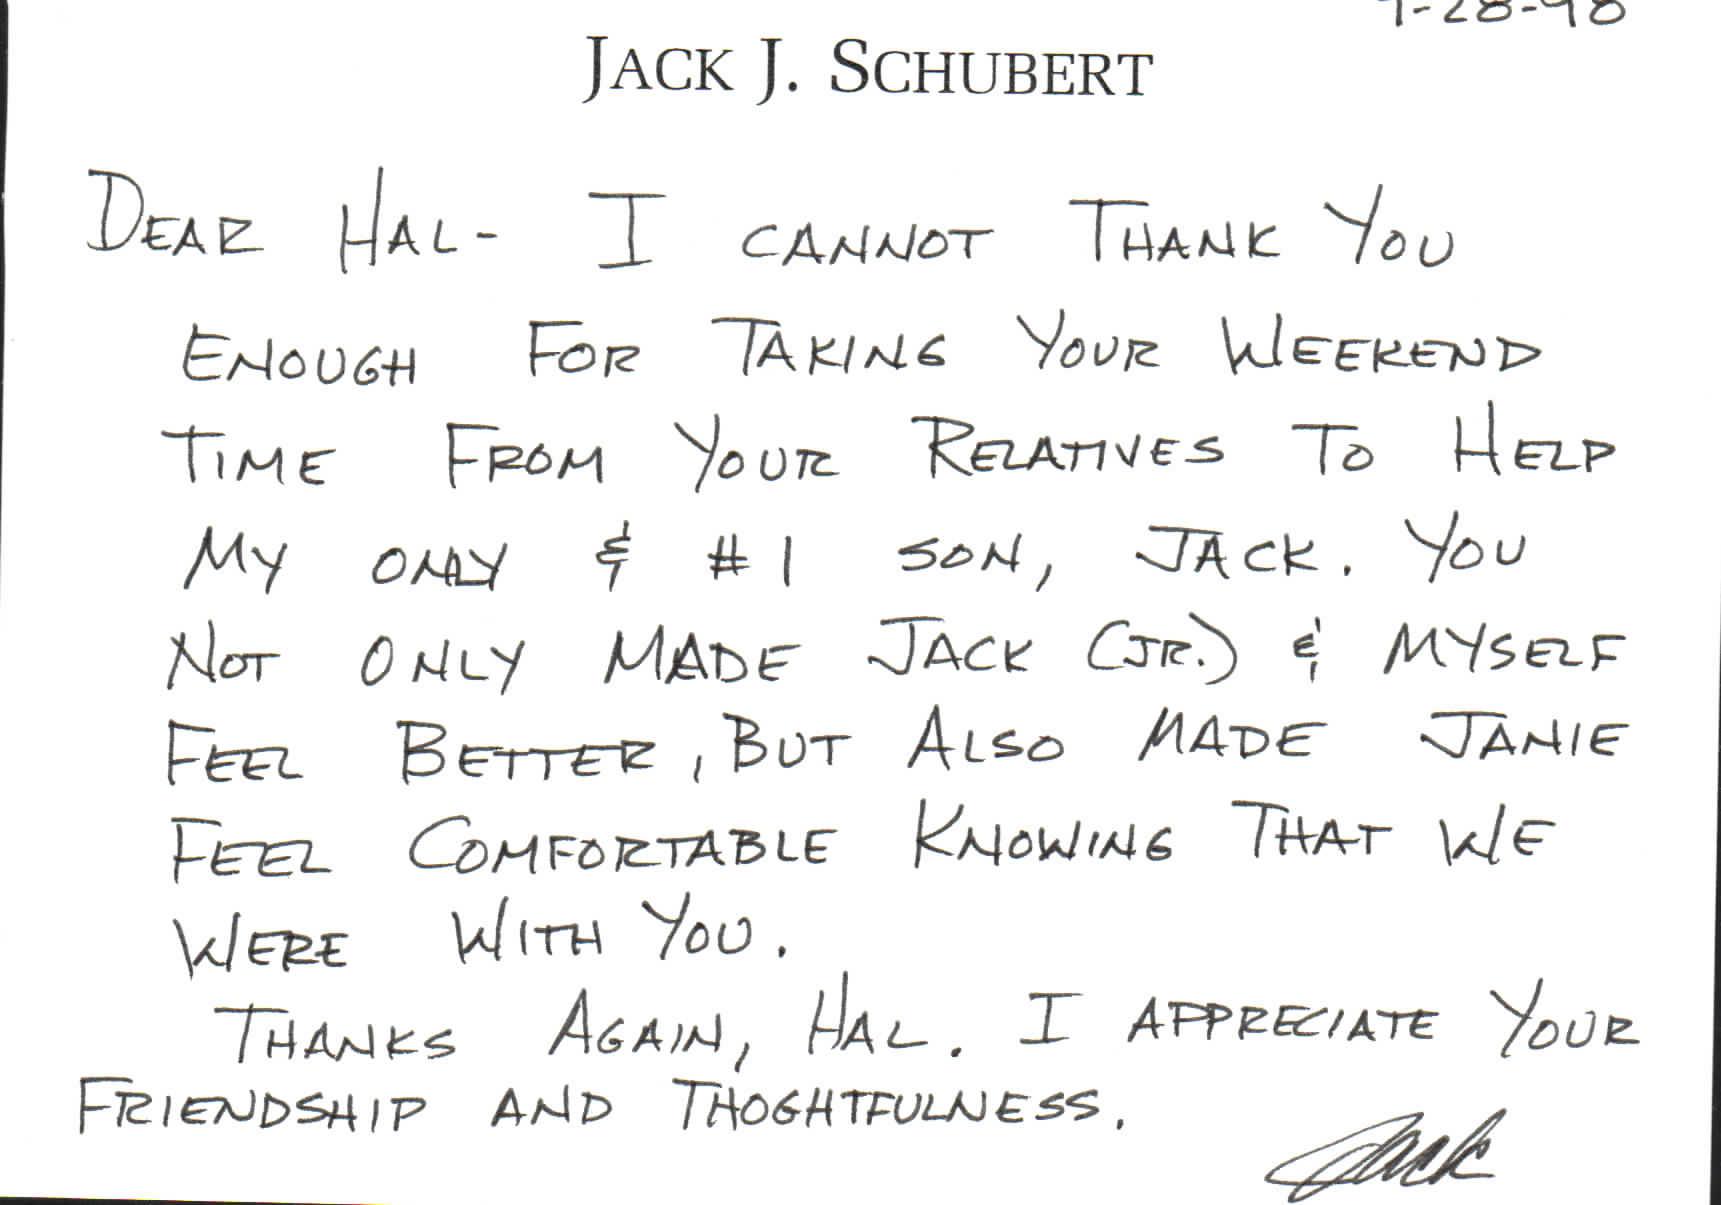 JACK J. SCHUBERT
DEAR HAL- I CANNOT THANK YOU
ENOUGH FOR TAKING YOUR WEEKEND
TIME FROM YOUR RELATIVES TO HELP
MY ONLY & #1 SON, JACK. YOU
NOT ONLY MADE JACK (JR.) & MYSELF
FEEL BETTER, BUT ALSO MADE JANIE
FEEL COMFORTABLE KNOWING THAT WE
WERE WITH YOU.
THANKS AGAIN, HAL. I APPRECIATE YOUR
FRIENDSHIP AND THOGHTFULNESS.
Jack